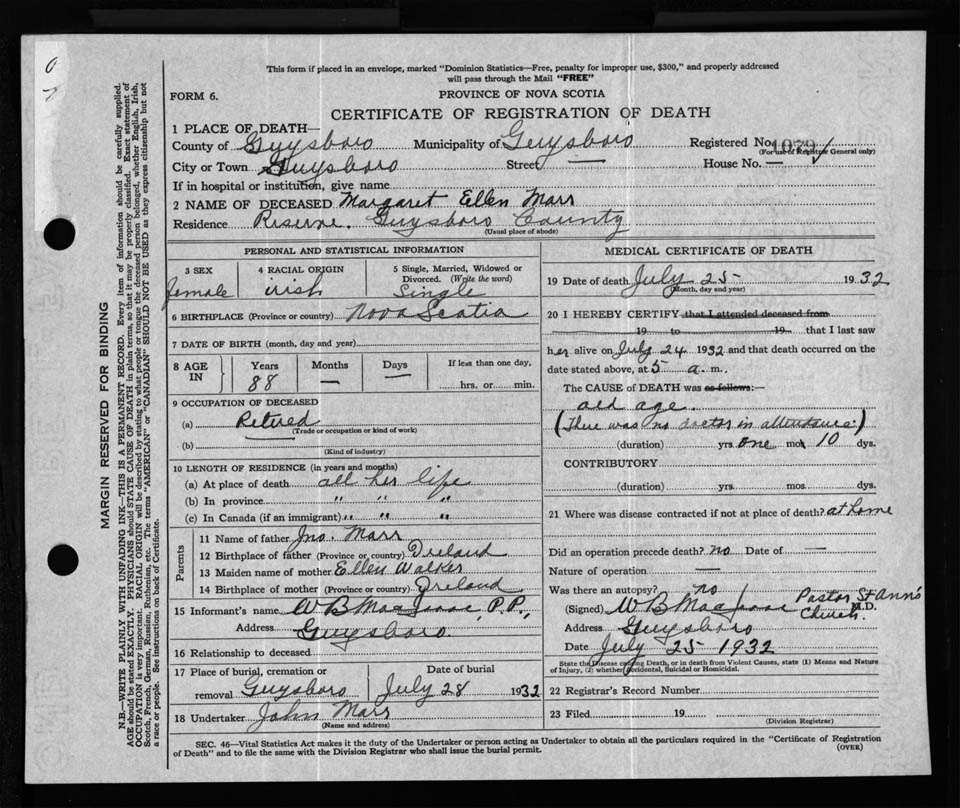 This form if placed in an envelope, marked "Dominion Statistics—Free, penalty for improper use, $300," and properly addressed
will pass through the Mail "FREE"
FORM 6. PROVINCE OF NOVA SCOTIA
CERTIFICATE OF REGISTRATION OF DEATH
1 PLACE OF DEATH—
County of Guysboro Municipality of Guysboro Registered No. 1079
(For use of Registrar General only)
City or Town Guysboro Street — House No. —
If in hospital or institution, give name
2 NAME OF DECEASED Margaret Ellen Marr
Residence Riserne, Guysboro County
(Usual place of abode)
PERSONAL AND STATISTICAL INFORMATION
3 SEX female
4 RACIAL ORIGIN irish
5 Single, Married, Widowed or Divorced. (Write the word) Single
6 BIRTHPLACE (Province or country) Nova Scotia
7 DATE OF BIRTH (month, day and year)
8 AGE IN Years 88 Months — Days — If less than one day, hrs. or min.
9 OCCUPATION OF DECEASED
(a) Retired
(Trade or occupation or kind of work)
(b)
(Kind of industry)
10 LENGTH OF RESIDENCE (in years and months)
(a) At place of death all her life
(b) In province " " "
(c) In Canada (if an immigrant) " " "
Parents
11 Name of father Jno. Marr
12 Birthplace of father (Province or country) Ireland
13 Maiden name of mother Ellen Walker
14 Birthplace of mother (Province or country) Ireland
15 Informant's name W B MacIsaac, P.P.,
Address Guysboro.
16 Relationship to deceased
17 Place of burial, cremation or Date of burial
removal Guysboro July 28 1932
18 Undertaker John Marr
(Name and address)
MEDICAL CERTIFICATE OF DEATH
19 Date of death July 25 1932
(Month, day and year)
20 I HEREBY CERTIFY that I attended deceased from
19 to 19 that I last saw
her alive on July 24 1932 and that death occurred on the
date stated above, at 5 a m.
The CAUSE OF DEATH was as follows:—
old age.
(There was no doctor in attendance.)
(duration) yrs. one mos. 10 dys.
CONTRIBUTORY
(duration) yrs. mos. dys.
21 Where was disease contracted if not at place of death? at home
Did an operation precede death? no Date of —
Nature of operation —
Was there an autopsy? no
(Signed) W B MacIsaac Pastor St Ann's Church. M.D.
Address Guysboro
Date July 25 1932
State the Disease causing Death, or in death from Violent Causes, state (1) Means and Nature
of Injury, (2) whether Accidental, Suicidal or Homicidal.
22 Registrar's Record Number
23 Filed 19
(Division Registrar)
SEC. 46—Vital Statistics Act makes it the duty of the Undertaker or person acting as Undertaker to obtain all the particulars required in the "Certificate of Registration
of Death" and to file the same with the Division Registrar who shall issue the burial permit. (OVER)
MARGIN RESERVED FOR BINDING
N.B.—WRITE PLAINLY WITH UNFADING INK—THIS IS A PERMANENT RECORD. Every item of information should be carefully supplied.
AGE should be stated EXACTLY. PHYSICIANS should STATE CAUSE OF DEATH in plain terms, so that it may be properly classified. Exact statement of
OCCUPATION is very important. RACIAL ORIGIN will be described by stating to what people or tongue the deceased person belonged, whether English, Irish,
Scotch, French, German, Russian, Ruthenian, etc. The terms "AMERICAN" or "CANADIAN" SHOULD NOT BE USED as they express citizenship but not
a race or people. See instructions on back of Certificate.